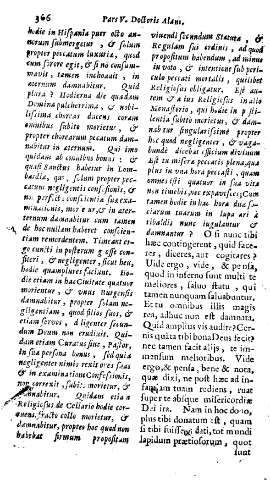 366 Pars V. Doctoris Alani.
hodie in Hispania puer octo an-
norum submergetur, & solum
propter peccatum luxuriæ, quod
cum sorore egit, & si non consum-
mavit, tamen inchoavit, in
æternum damnabitur. Quid
plura? Hodierna die quædam
Domina pulcherrima, & nobi-
lissima choreas ducens coram
omnibus subito morietur, &
propter chorearum peccatum dam-
nabitur in æternum. Qui imo
quidam ab omnibus bonus: &
quasi Sanctus habetur in Lom-
bardia, qui, solum propter pec-
catum negligentis confessionis, &
non perfectæ conscientiæ suæ exa-
minationis, morietur, & in æter-
num damnabitur cum tamen
de hoc nullam haberet conscien-
tiam remordentem. Timeant er-
go cuncti in posterum & esse con-
fiteri, & negligenter, sicut heu,
hodie quamplures faciunt. Ho-
die etiam in hac Civitate quatuor
morientur, & omnes insurgentis
damnabuntur, propter solam ne-
gligentiam, quod filios suos, &
etiam servos, ad ligentes secun-
dum Deum non erudivit. Qui-
dam etiam Curatus sive, Pastor,
In sua persona bonus, sed quia
negligenter nimis rexit oves suas
& in examinatione Confessionis,
non correxit, subito morietur, &
damnabitur. Quidam etiam
Religiosus de Cellario hodie cor-
ruens, fracto collo morietur, &
damnabitur, propter hoc quod non
habebat firmum propositum
vivendi secundum Statuta, &
Regulam sui ordinis, ad quod
propositum habendum, ad minus
in voto, & intentione sub peri-
culo peccati mortalis, quilibet
Religiosus obligatur. Est au-
tem & alius Religiosus in alio
Monasterio, qui hodie in pesti-
lentia subito morietur, & dam-
nabitur singularissime propter
hoc quod negligenter, & vaga-
bunde dicebat officium divinum
Est tu misera peccatis plena, quæ
plus in una hora peccasti, quam
omnes isti quatuor in sua vita
non timebis, nec expavesces: Cum
tamen hodie in hac hora duo sæ-
cularium tuarum in lupanari à
rivalibus nunc jugulantur &
damnantur? O si nunc tibi
hæc contingerent, quid face-
ret, diceres, aut cogitares?
Vide ergo, vide, & pensa,
quod in inferno sunt multi te
meliores, saluo statu, qui
tamen nunquam salvabuntur.
Et tu omnibus illis magis
rea, adhuc non est damnata.
Quid amplius vis audire? Cer-
tis quia tibi bona Deus fecit
nec tamen facit aliis, te im-
mensum melioribus. Vide
ergo, & pensa, bene & nota,
quæ dixi, ne post hæc ad in-
famiam tuam rediens, ruat
super te absque misericordia
Dei ira. Nam in hoc dono,
plus tibi donatum est, quam
si tibi fuissent dati, tot mundi
lapidum prætiosorum, quot
sunt